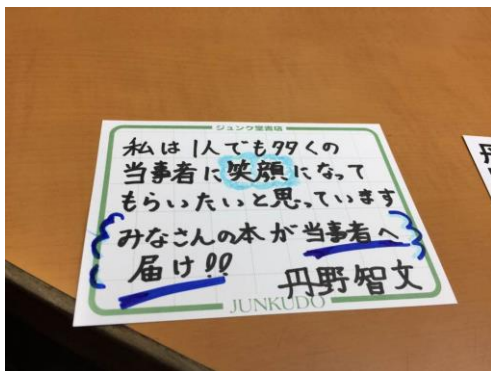 ジュンク堂書店
私は1人でも多くの
当事者に笑顔になって
もらいたいと思っています
みなさんの本が当事者へ
届け!!
丹野智文
JUNKUDO